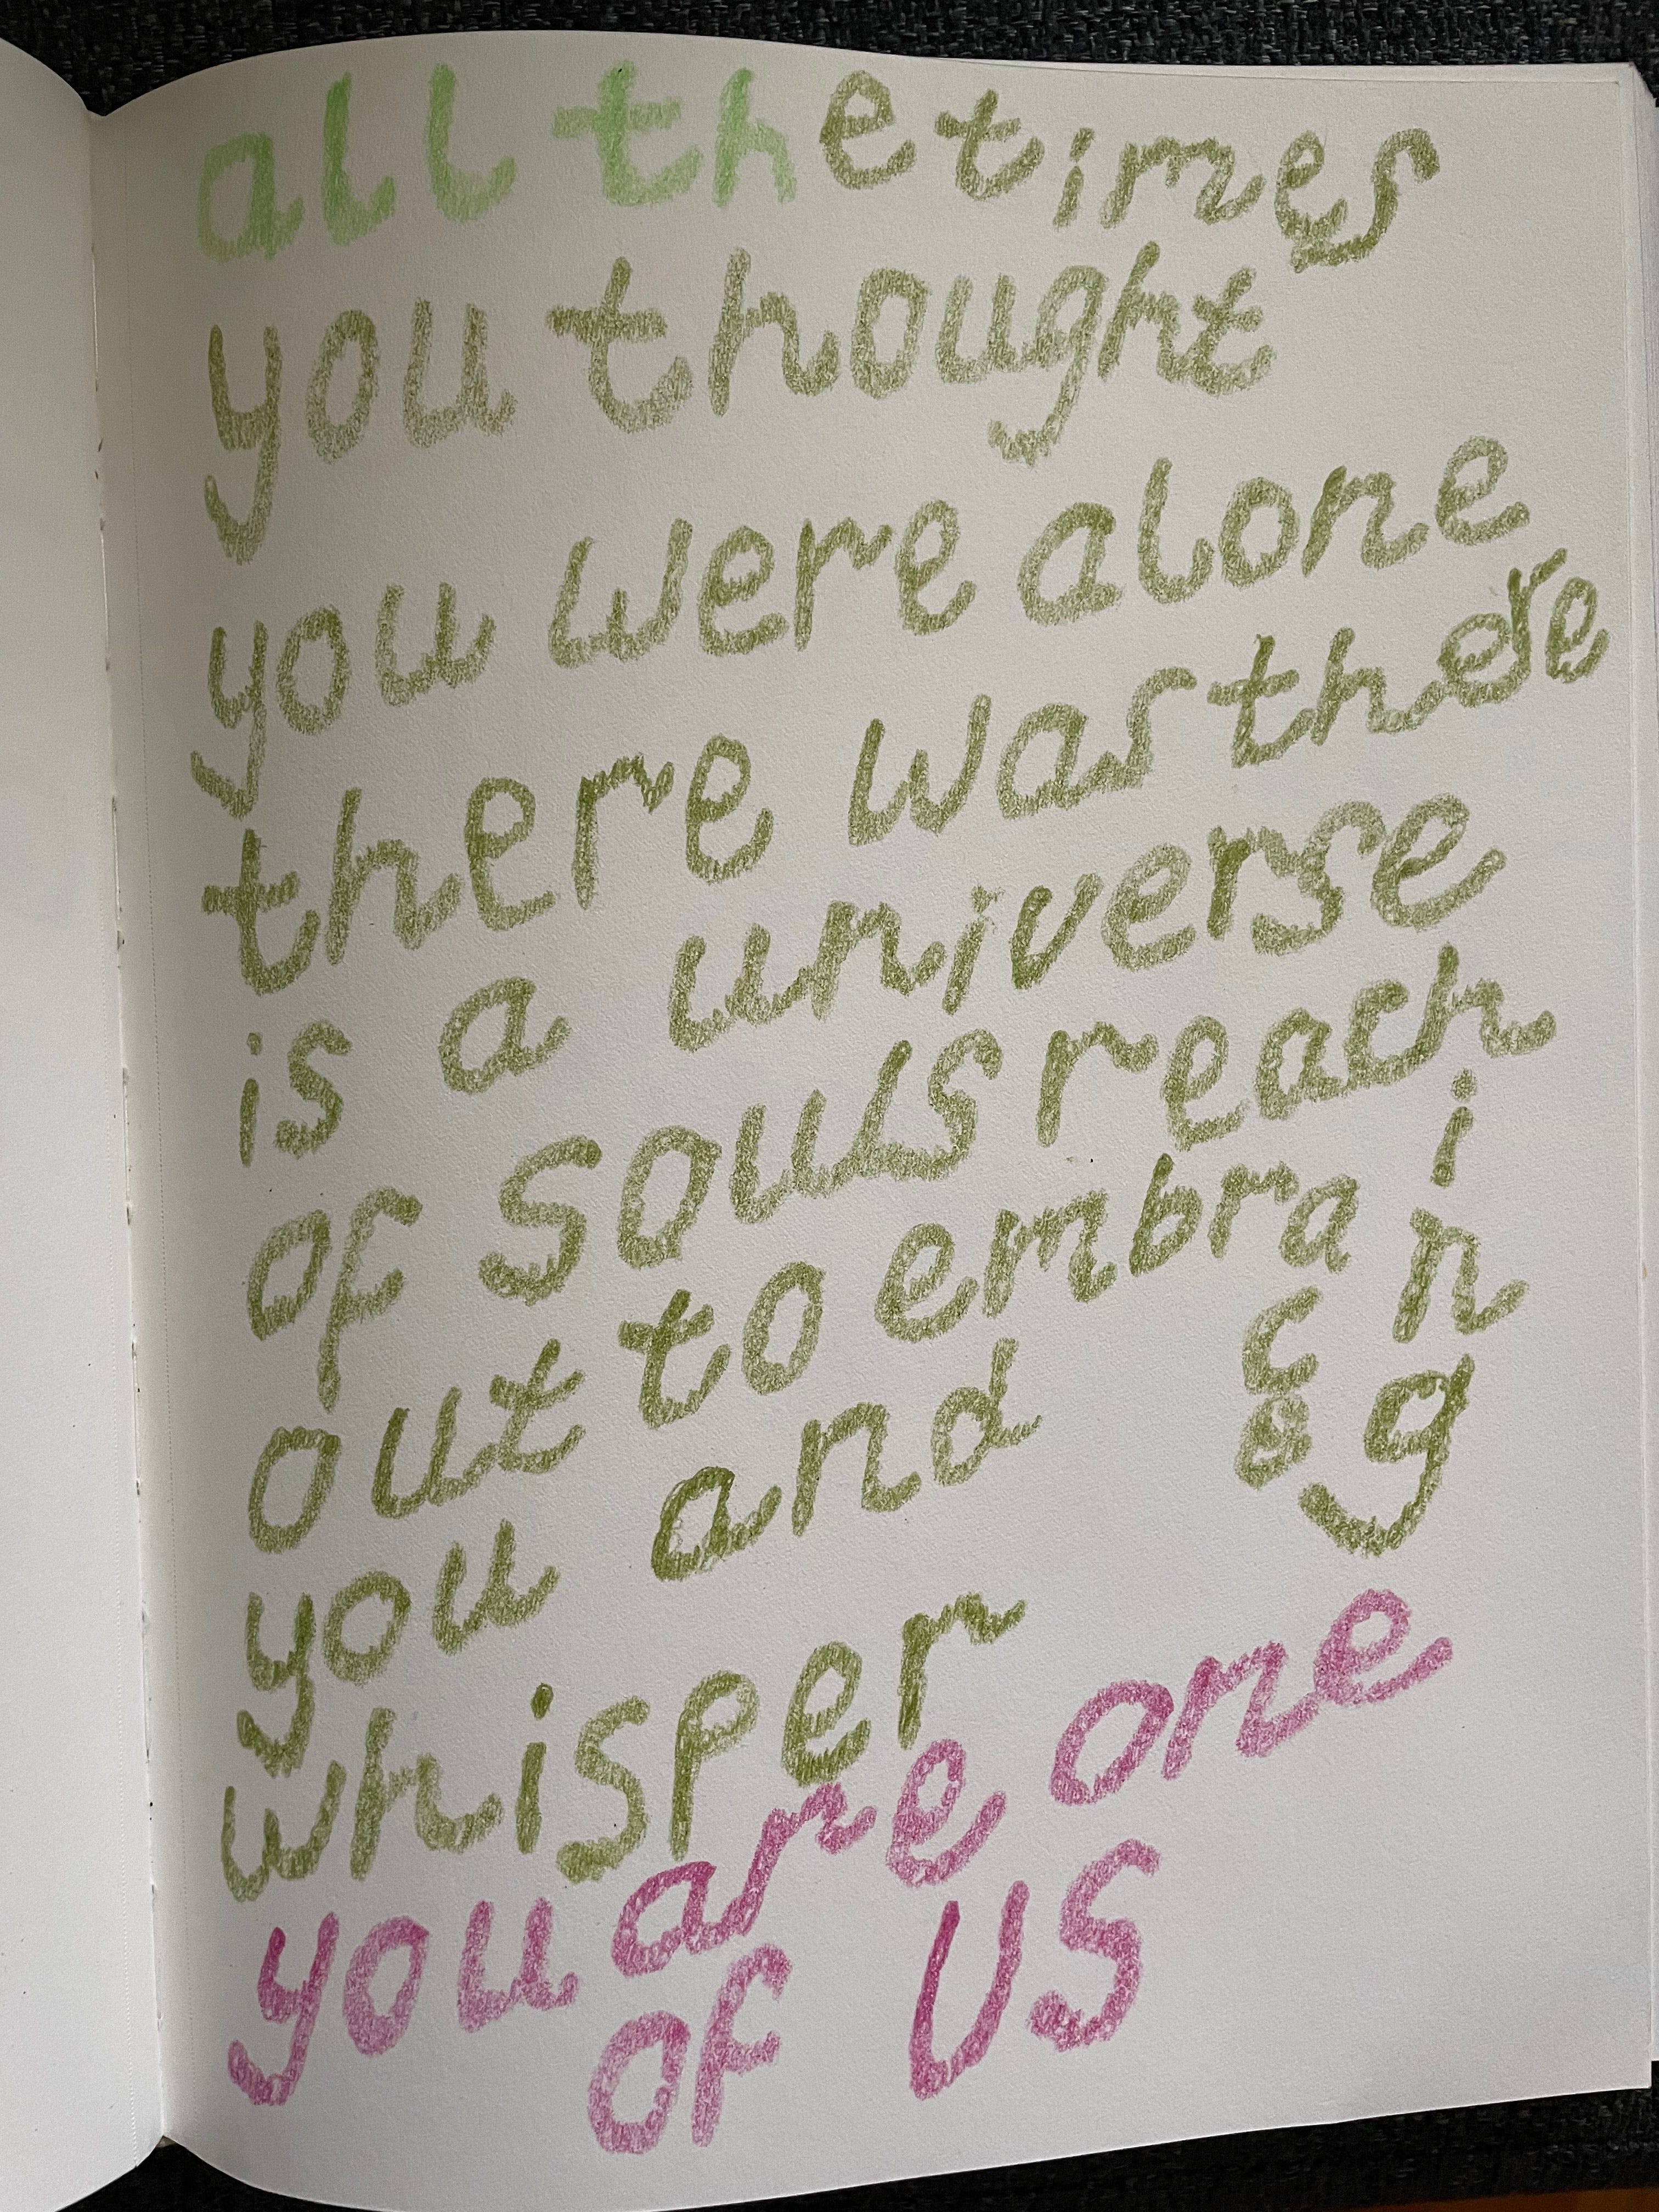 all the times
you thought
you were alone
there was there
is a universe
of souls reaching
out to embrace
you and
whisper
you are one
of us